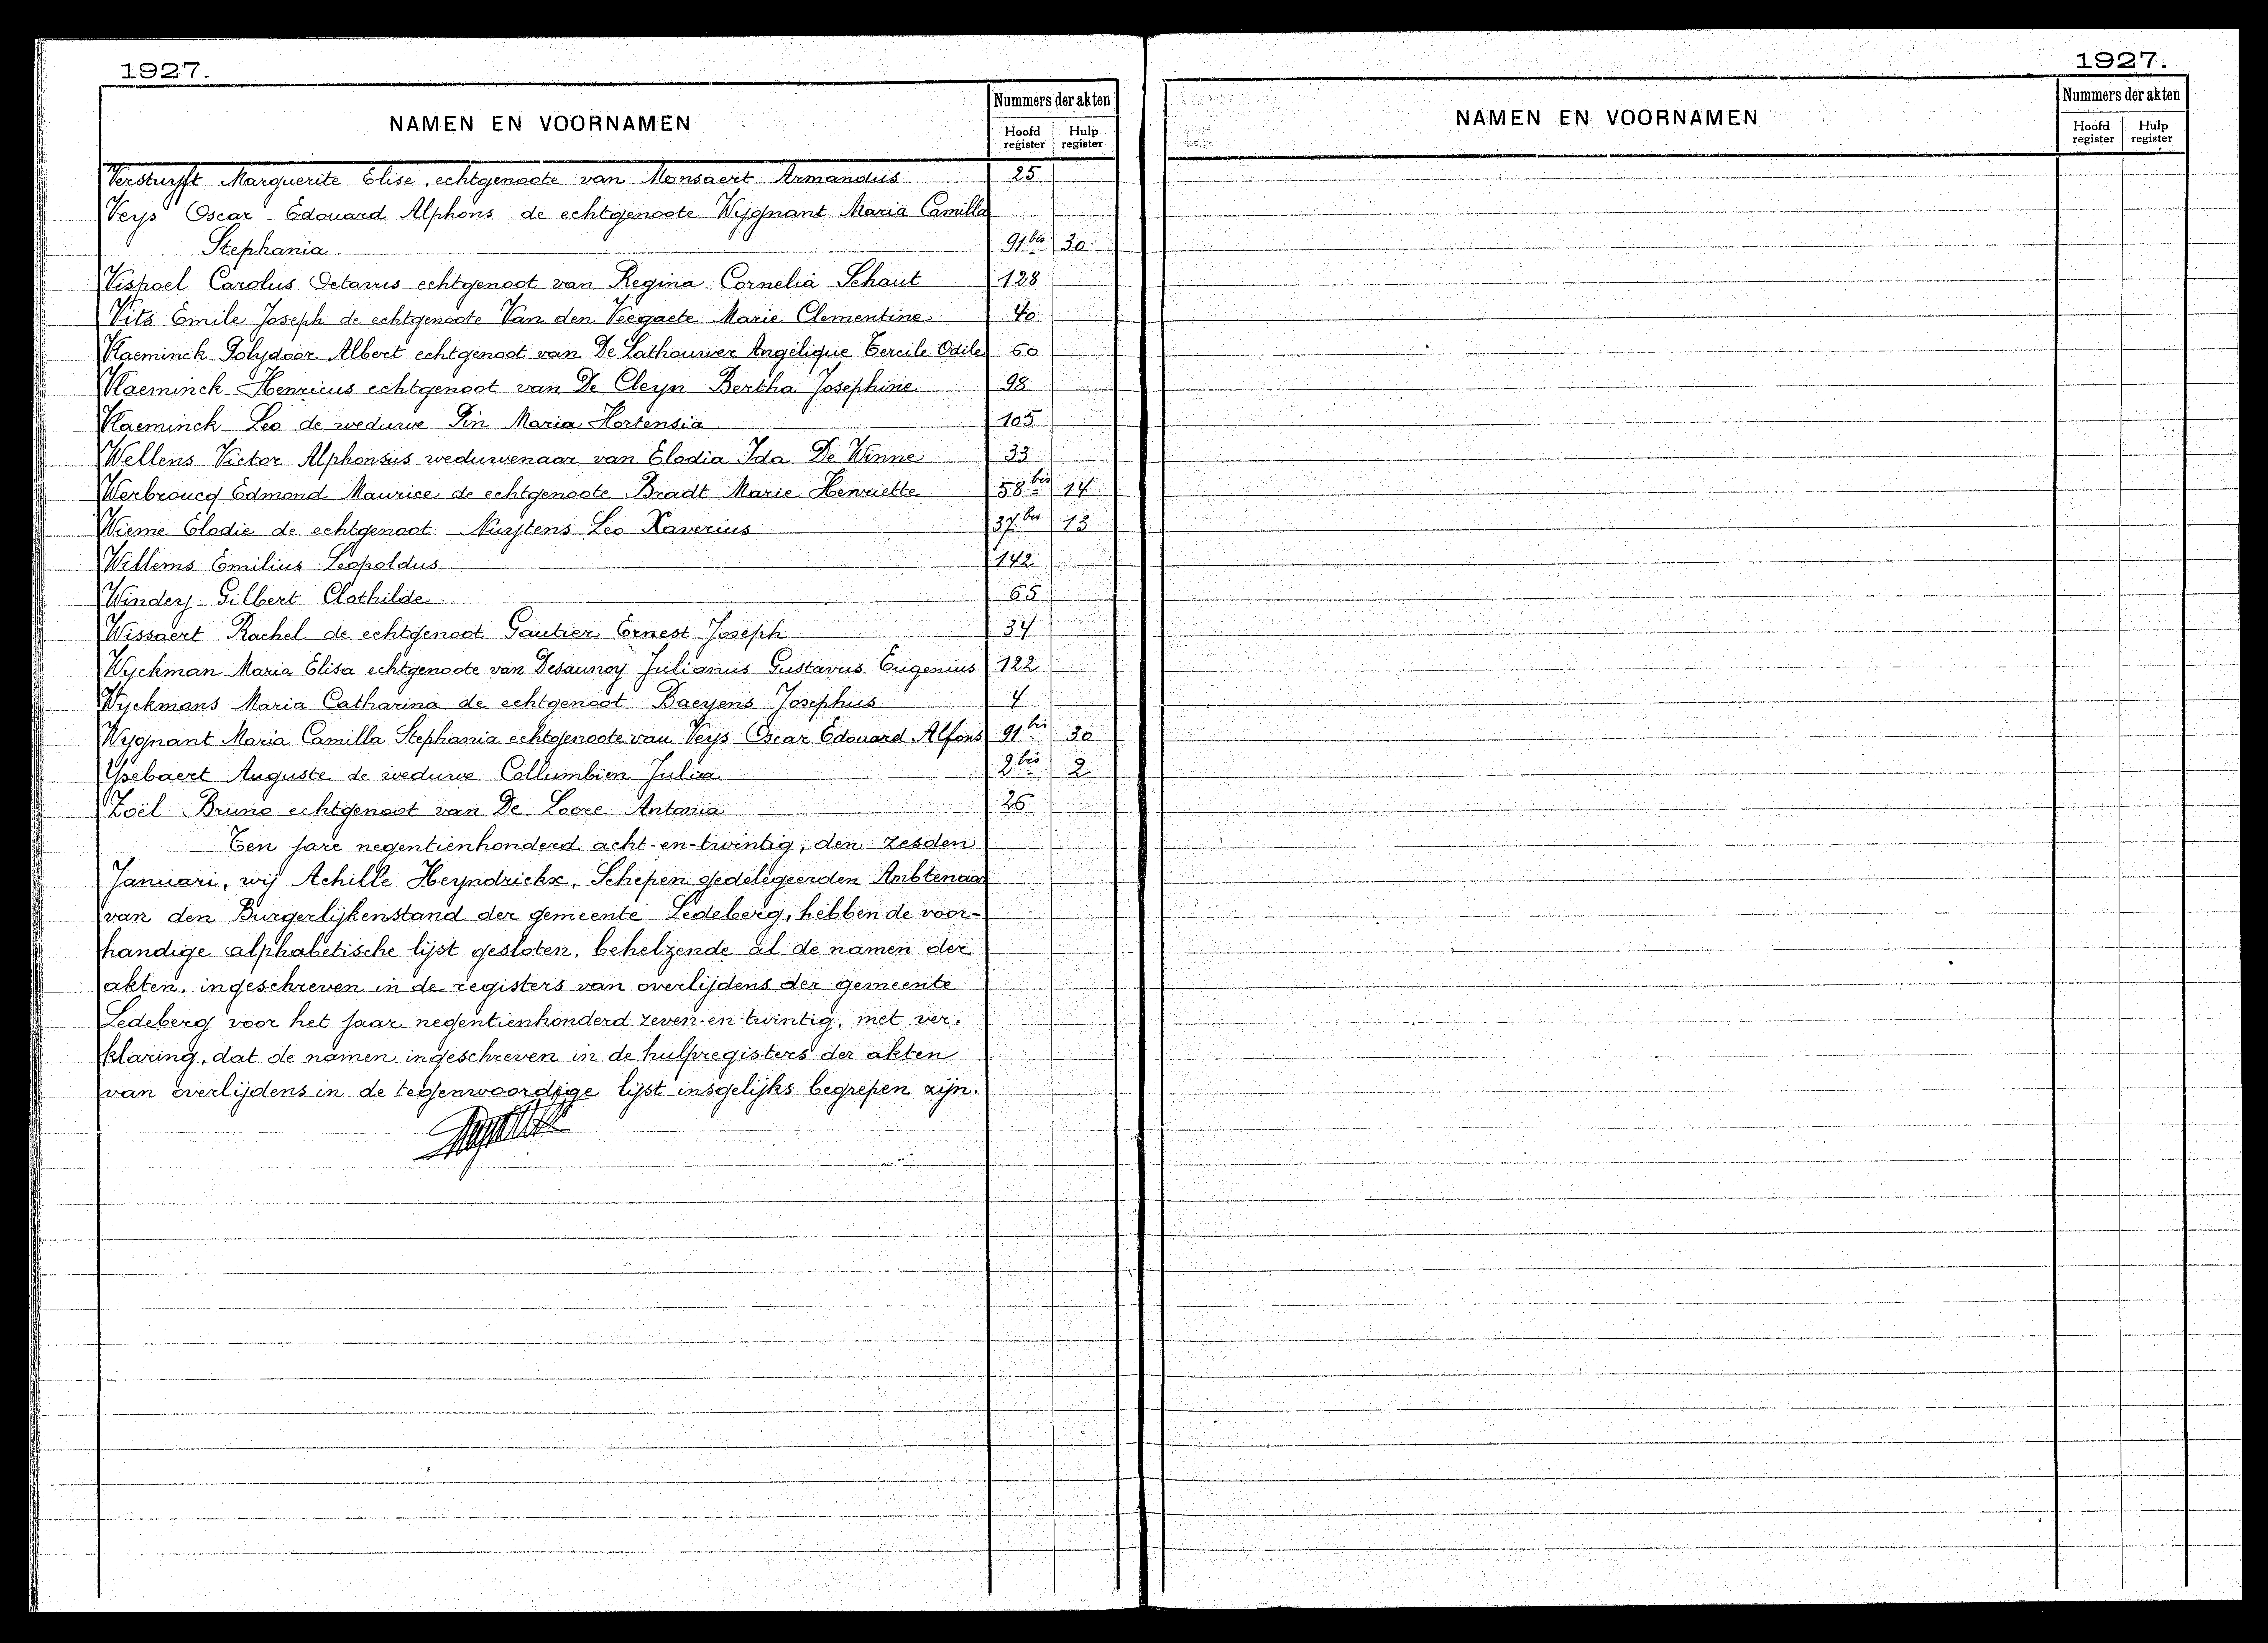 1927.
NAMEN EN VOORNAMEN
Nummers der akten
Hoofd register
Hulp register
Verstuyft Marguerite Elise, echtgenoote van Monsaert Armandus 25
Veys Oscar Edouard Alphons de echtgenoote Wygnant Maria Camilla
Stephania 91bis 30
Vispoel Carolus Octavus echtgenoot van Regina Cornelia Schaut 128
Vits Emile Joseph de echtgenoote Van den Veegaete Marie Clementine 40
Vlaeminck Polydoor Albert echtgenoot van De Lathouwer Angélique Odile 60
Vlaeminck Henricus echtgenoot van De Cleyn Bertha Josephine 98
Vlaeminck Leo de weduwe Pin Maria Hortensia 105
Wellens Victor Alphonsus weduwenaar van Elodia Ida De Winne 33
Werbroucq Edmond Maurice de echtgenoote Bradt Marie Henriette 58bis 14
Wieme Elodie de echtgenoot Nuytens Leo Xaverius 37bis 13
Willems Emilius Leopoldus 142
Windey Gilbert Clothilde 65
Wissaert Rachel de echtgenoot Gautier Ernest Joseph 34
Wyckman Maria Elisa echtgenoote van Desaunoy Julianus Gustavus Eugenius 122
Wyckmans Maria Catharina de echtgenoot Baeyens Josephus 4
Wygnant Maria Camilla Stephania echtgenoote van Veys Oscar Edouard Alfons 91bis 30
Ysebaert Auguste de weduwe Collumbien Julia 2bis 2
Zoël Bruno echtgenoot van De Loore Antonia 26
Ten jare negentienhonderd acht-en-twintig, den zesden
Januari, wij Achille Heyndrickx, Schepen gedelegeerden Ambtenaar
van den Burgerlijkenstand der gemeente Ledeberg, hebben de voor-
handige alphabetische lijst gesloten, behelzende al de namen der
akten, ingeschreven in de registers van overlijdens der gemeente
Ledeberg voor het jaar negentienhonderd zeven-en-twintig, met ver-
klaring, dat de namen ingeschreven in de hulpregisters der akten
van overlijdens in de tegenwoordige lijst insgelijks begrepen zijn.
1927.
NAMEN EN VOORNAMEN
Nummers der akten
Hoofd register
Hulp register